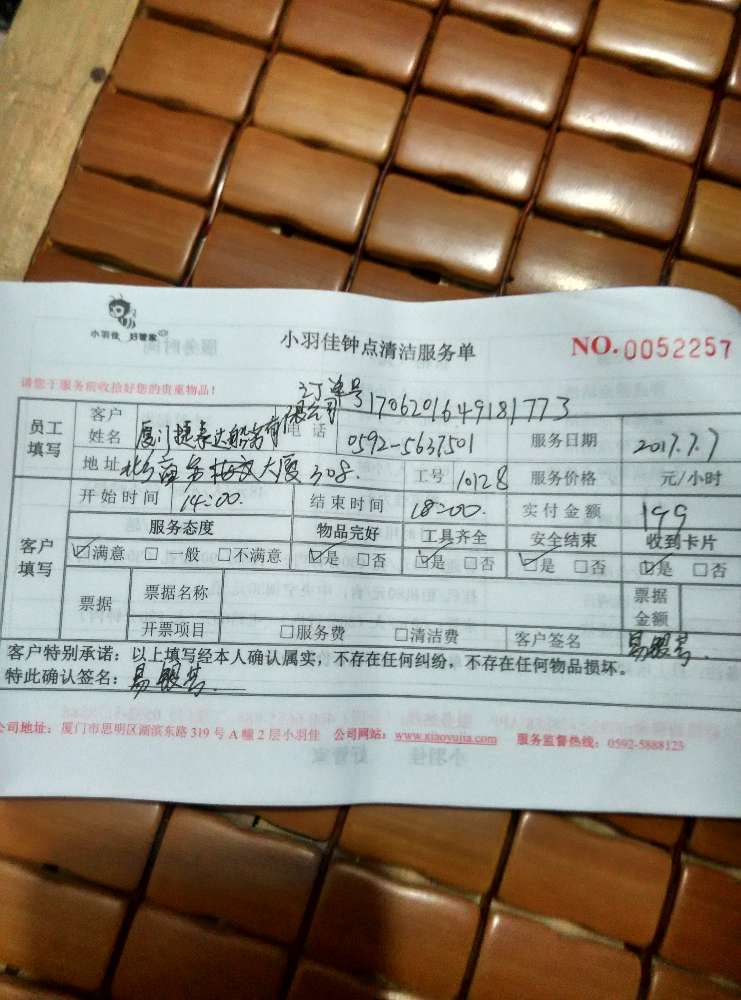 小羽佳 好管家
小羽佳钟点清洁服务单
NO.0052257
请您于服务前收拾好您的贵重物品!
订单号1706201649181773
员工填写
客户姓名 厦门捷泰达船务有限公司 电话 0592-5637501 服务日期 2017.7.7
地址 大厦308. 工号 10128 服务价格 元/小时
客户填写
开始时间 14:00. 结束时间 18:00. 实付金额 199
服务态度 物品完好 工具齐全 安全结束 收到卡片
☑满意 □一般 □不满意 ☑是 □否 ☑是 □否 ☑是 □否 ☑是 □否
票据 票据名称 票据金额
开票项目 □服务费 □清洁费 客户签名
客户特别承诺:以上填写经本人确认属实,不存在任何纠纷,不存在任何物品损坏。
特此确认签名:
公司地址:厦门市思明区湖滨东路319号A幢2层小羽佳 公司网站:www.xiaoyujia.com 服务监督热线:0592-5888123